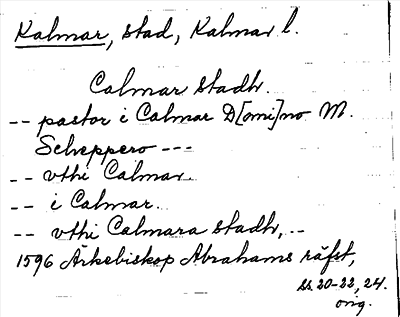 Kalmar, stad, Kalmar l.
Calmar stadh.
-- pastor i Calmar D[omi]no M.
Scheppero ---
-- vthi Calmar.
-- i Calmar.
-- vthi Calmara stadh, --
1596 Ärkebiskop Abrahams räfst,
ss. 20-22, 24.
orig.